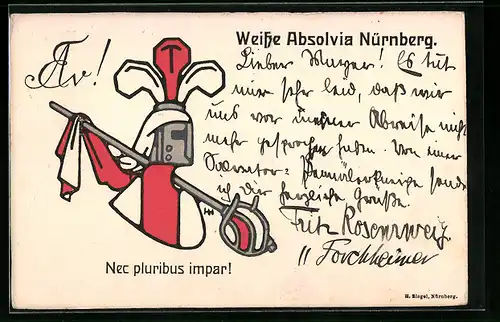 Weiße Absolvia Nürnberg.
Av!
T
Lieber Mayer! Es tut
mir sehr leid, daß wir
uns vor meiner Abreise nicht
mehr gesprochen haben. Von einer
Salvator-
ich Dir herzliche Grüße.
Fritz Rosenzweig
" Forchheimer
Nec pluribus impar!
H. Siegel, Nürnberg.